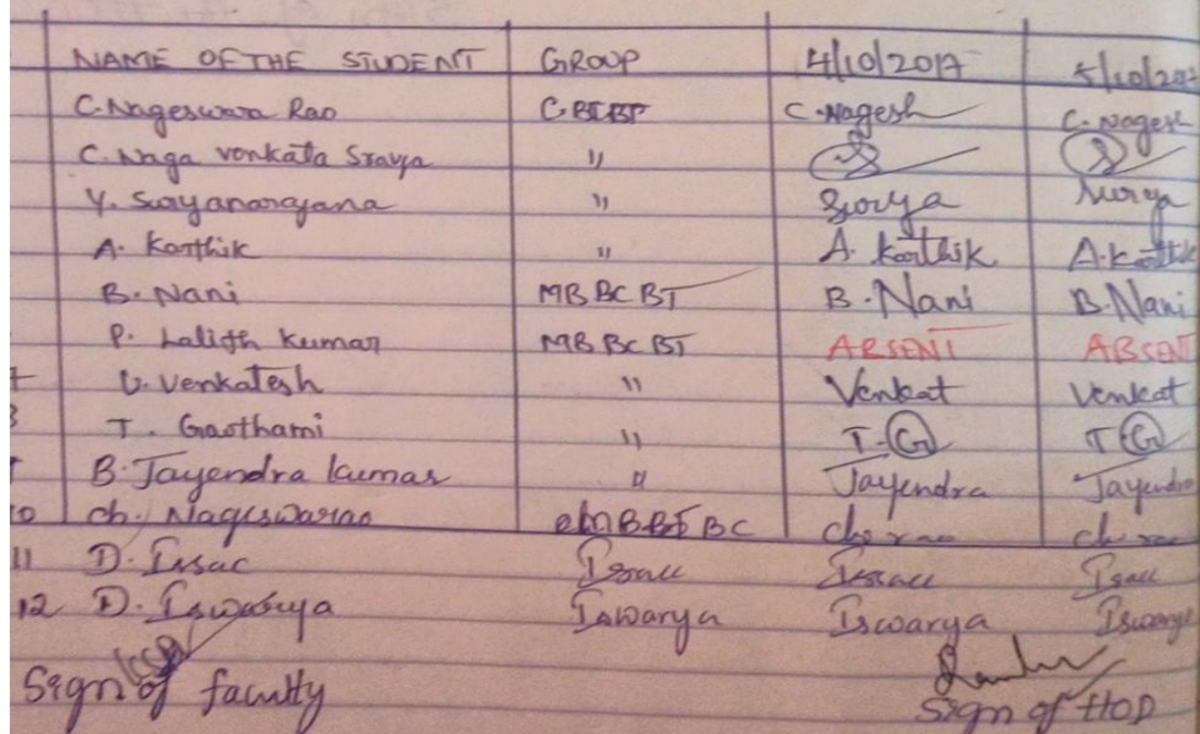 NAME OF THE STUDENT GROUP 4/10/2017 5/10/201
C. Nageswara Rao CBCBT C. Nagesh C. Nagesh
C. Naga Venkata Sravya "
Y. Suryanarayana " Surya Surya
A. Karthik " A. Karthik A. Karthik
B. Nani MBBCBT B. Nani B. Nani
P. Lalith Kumar MBBCBT ABSENT ABSENT
7 U. Venkatesh " Venkat Venkat
8 T. Gowthami " T. G T G
B. Jayendra Kumar " Jayendra Jayendra
10 Ch. Nageswarao BC Ch. rao
11 D. Issac Issac Issac Issac
12 D. Iswarya Iswarya Iswarya Iswarya
Sign of faculty Sign of HOD